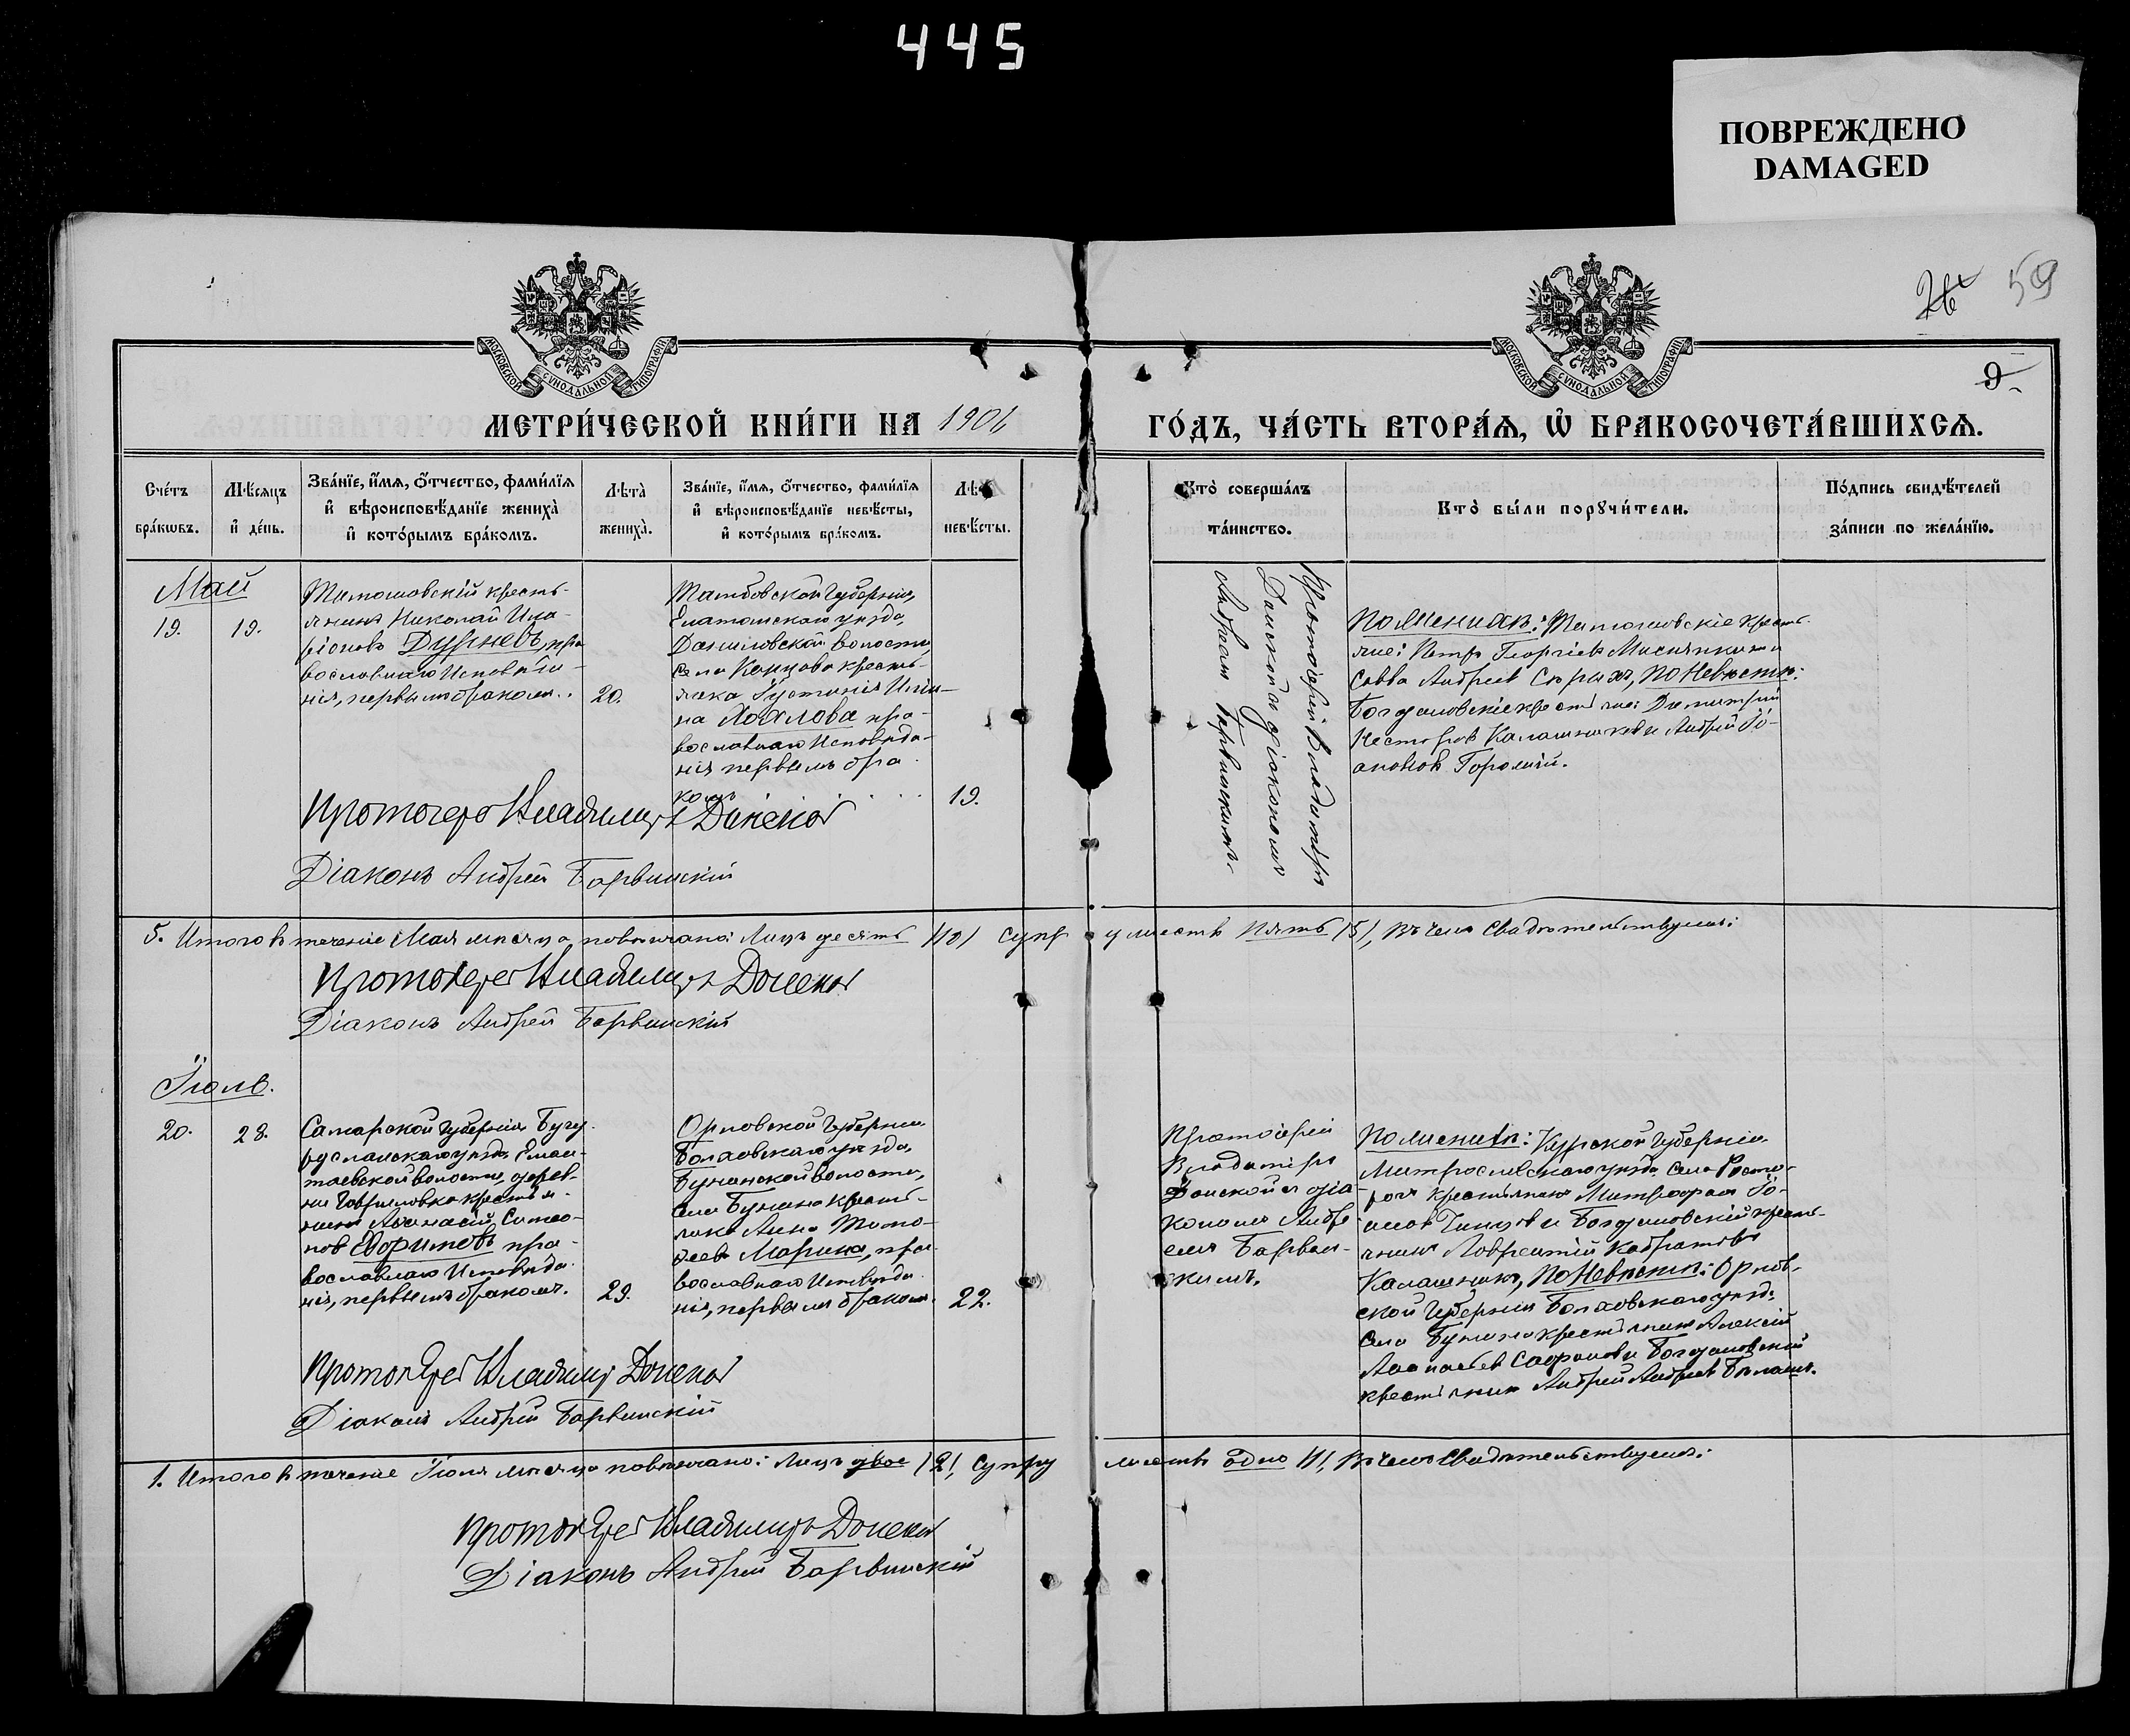 445
ПОВРЕЖДЕНО
DAMAGED
59
26
9
МОСКОВСКОЙ СѴНОДАЛЬНОЙ ТИПОГРАФІИ
МОСКОВСКОЙ СѴНОДАЛЬНОЙ ТИПОГРАФІИ
МЕТРИ́ЧЕСКОЙ КНИ́ГИ НА 1901
ГО́ДЪ, ЧА́СТЬ ВТОРА́Ѧ, Ѡ҆ БРАКОСОЧЕТА́ВШИХСѦ.
Сче́тъ
бра́кѡвъ.
Мѣ́сяцъ
и҆ де́нь.
Зва́нїе, и҆́мѧ, ѻ҆́тчество, фами́лїѧ
и҆ вѣроисповѣ́данїе жениха̀
и҆ кото́рымъ бра́комъ.
Лѣта̀
жениха̀.
Зва́нїе, и҆́мѧ, ѻ҆́тчество, фами́лїѧ
и҆ вѣроисповѣ́данїе невѣ́сты,
и҆ кото́рымъ бра́комъ.
Лѣ
невѣ́сты.
Кто̀ соверша́лъ
та́инство.
Кто̀ бы́ли порꙋчи́тели.
По́дпись свидѣ́телей
за́писи по жела́нїю.
Май
19. 19.
крестъ-
янинъ Николай Ила-
ріоновъ пра-
вославнаго Исповѣда-
нія, первымъ бракомъ.
20.
Тамбовской Губерніи,
Елатомскаго уѣзда,
Даниловской волости,
села крестъ-
янка Іустинія
на пра-
вославнаго Исповѣда-
нія первымъ бра-
комъ
19.
Протоіерей Владиміръ
Донской съ діакономъ
Андреемъ Барвинскимъ.
По Женихѣ: крестъ-
яне: Петръ Георгіевъ
Савва Андреевъ По Невѣстѣ:
Богдановскіе крестьяне: Димитрій
Несторовъ Калашниковъ и Андрей Іо-
анновъ
Протоіерей Владиміръ Донской
Діаконъ Андрей Барвинскій
5. Итого въ теченіе Мая мѣсяца повѣнчано: Лицъ десять /10/ супр
ужествъ Пять /5/, въ чемъ Свидѣтельствуемъ:
Протоіерей Владиміръ Донской
Діаконъ Андрей Барвинскій
Іюль.
20. 28.
Самарской Губерніи Бугу-
русланскаго уѣзда,
волости, дерев-
ни Гавриловка крестья-
нинъ Аѳанасій Симео-
новъ пра-
вославнаго Исповѣда-
нія, первымъ бракомъ.
29.
Орловской Губерніи
Болховскаго уѣзда,
Бунинской волости,
села Бунина крестъ-
янка Анна Тимо-
ѳеева Марина, пра-
вославнаго Исповѣда-
нія, первымъ бракомъ.
22.
Протоіерей
Владиміръ
Донской съ діа-
кономъ Андре-
емъ Барвин-
скимъ.
По женихѣ: Курской Губерніи
уѣзда, села
крестьянинъ Митрофанъ Іо-
анновъ и Богдановскій крестъ-
янинъ Лаврентій
По Невѣстѣ: Орлов-
ской Губерніи Болховскаго уѣзда
села Бунина крестьянинъ Алексій
Аѳанасьевъ Сафоновъ и Богдановскій
крестьянинъ Андрей Андреевъ
Протоіерей Владиміръ Донской
Діаконъ Андрей Барвинскій
1. Итого въ теченіе Іюля мѣсяца повѣнчано: Лицъ двое /2/, Супру
жествъ одно /1/, въ чемъ Свидѣтельствуемъ:
Протоіерей Владиміръ Донской
Діаконъ Андрей Барвинскій